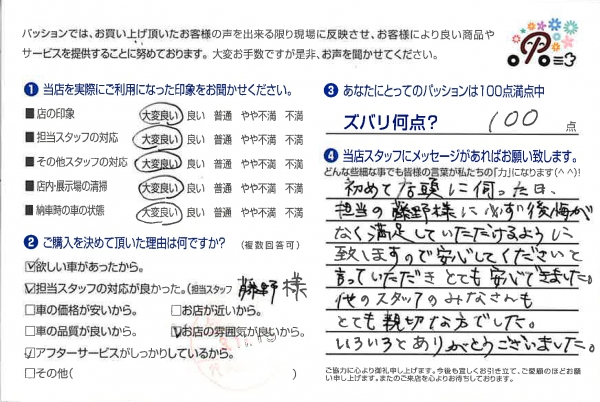 パッションでは、お買い上げ頂いたお客様の声を出来る限り現場に反映させ、お客様により良い商品や
サービスを提供することに努めております。大変お手数ですが是非、お声を聞かせてください。
P
❶ 当店を実際にご利用になった印象をお聞かせください。
■店の印象 大変良い 良い 普通 やや不満 不満
■担当スタッフの対応 大変良い 良い 普通 やや不満 不満
■その他スタッフの対応 大変良い 良い 普通 やや不満 不満
■店内・展示場の清掃 大変良い 良い 普通 やや不満 不満
■納車時の車の状態 大変良い 良い 普通 やや不満 不満
❷ ご購入を決めて頂いた理由は何ですか? (複数回答可)
☑欲しい車があったから。
☑担当スタッフの対応が良かった。(担当スタッフ 藤野 様
□車の価格が安いから。 □お店が近いから。
□車の品質が良いから。 ☑お店の雰囲気が良いから。
☑アフターサービスがしっかりしているから。
□その他( )
❸ あなたにとってのパッションは100点満点中
ズバリ何点? 100 点
❹ 当店スタッフにメッセージがあればお願い致します。
どんな些細な事でも皆様の言葉が私たちの「力」になります(^^)!
初めて店頭に伺った日、
担当の藤野様に必ず後悔が
なく満足していただけるように
致しますので安心してくださいと
言っていただき とても安心できました。
他のスタッフのみなさんも
とても親切な方でした。
いろいろとありがとうございました。
ご協力に心より御礼申し上げます。今後も宜しくお引き立て、ご愛顧のほどお願
い申し上げます。またのご来店を心よりお待ちしております。